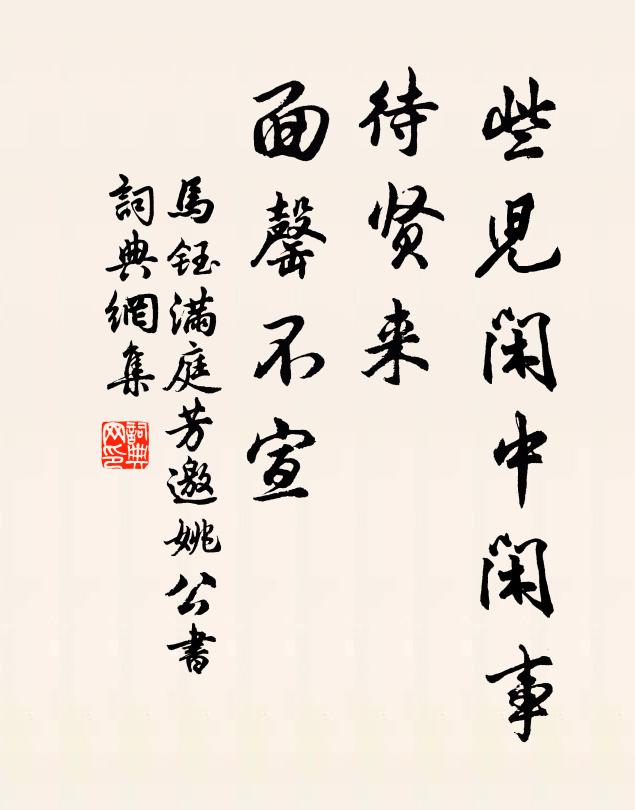 些児閑中閑事
待贤来
面罄不宣
馬鈺满庭芳邀姚公書
詞典網集
詞典
网印